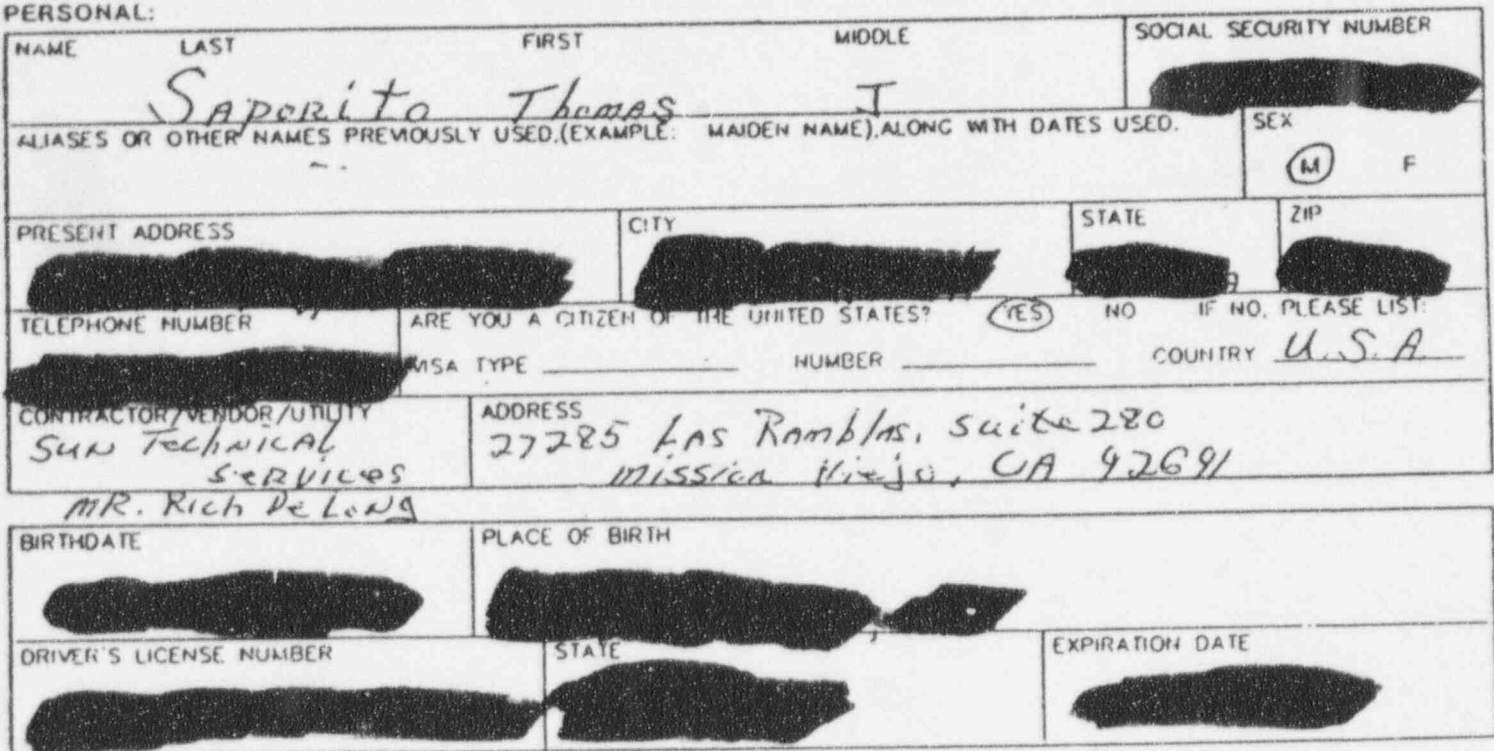 PERSONAL:
NAME LAST FIRST MIDDLE SOCIAL SECURITY NUMBER
Saporito Thomas J
ALIASES OR OTHER NAMES PREVIOUSLY USED.(EXAMPLE: MAIDEN NAME),ALONG WITH DATES USED. SEX
M F
PRESENT ADDRESS CITY STATE ZIP
TELEPHONE NUMBER ARE YOU A CITIZEN OF THE UNITED STATES? YES NO IF NO, PLEASE LIST:
VISA TYPE NUMBER COUNTRY U.S.A
CONTRACTOR/VENDOR/UTILITY ADDRESS
Sun Technical 27285 Las Ramblas, Suite 280
Services Mission Viejo, CA 92691
MR. Rich DeLong
BIRTHDATE PLACE OF BIRTH
DRIVER'S LICENSE NUMBER STATE EXPIRATION DATE